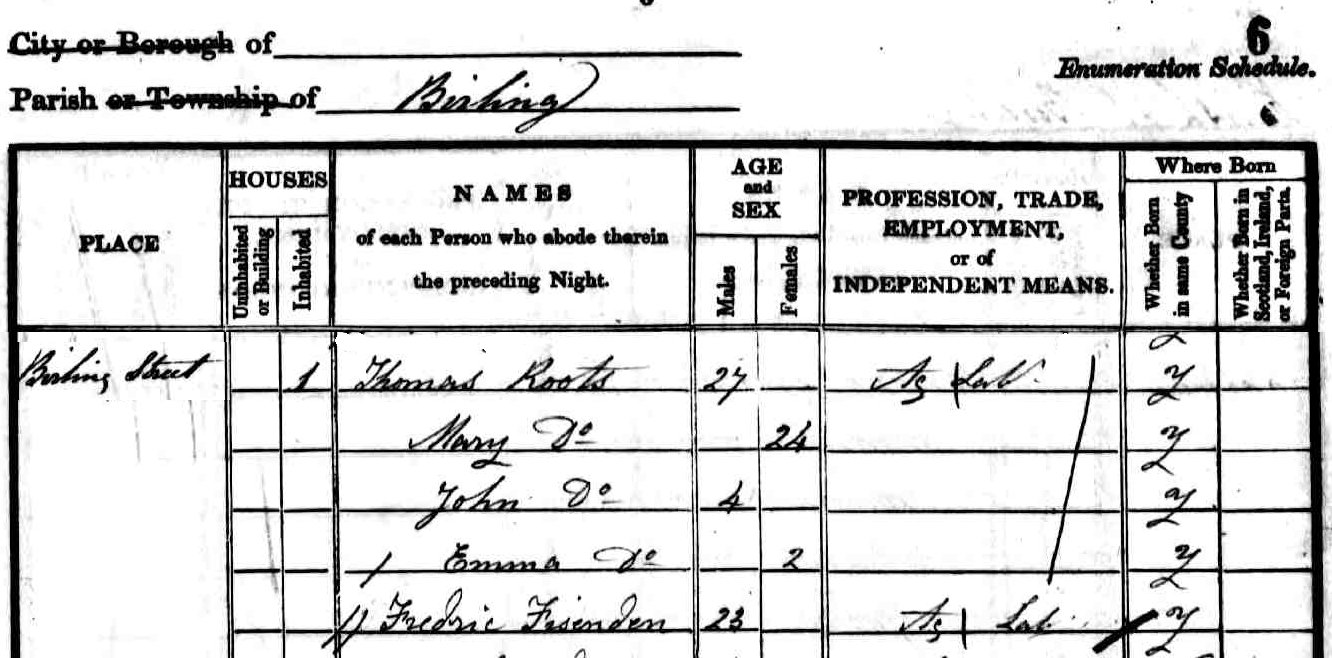 City or Borough of
6
Enumeration Schedule.
Parish or Township of Birling
6
PLACE
HOUSES
Uninhabited or Building
Inhabited
NAMES
of each Person who abode therein
the preceding Night.
AGE
and
SEX
Males
Females
PROFESSION, TRADE,
EMPLOYMENT,
or of
INDEPENDENT MEANS.
Where Born
Whether Born in same County
Whether Born in Scotland, Ireland, or Foreign Parts.
Birling Street 1 Thomas Roots 27 Ag Lab y
Mary Do 24 y
John Do 4 y
Emma Do 2 y
Fredric Fisenden 23 Ag Lab y